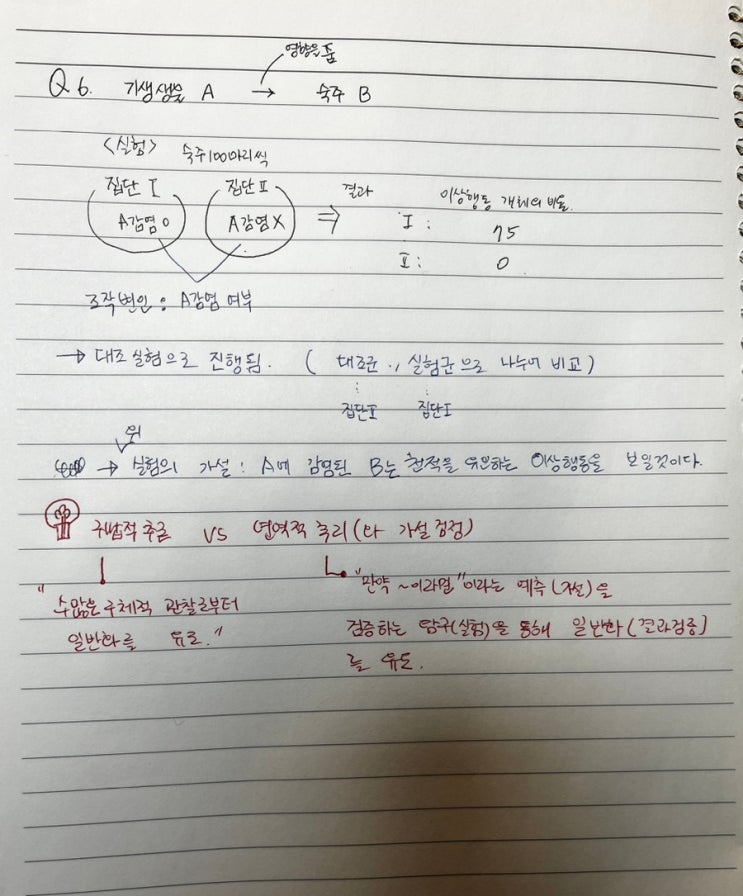 영향을 줌
Q 6. 기생생물 A → 숙주 B
<실험> 숙주100마리씩
집단 I 집단 II 결과 이상행동 개체의 비율.
A감염 o A감염 X ⇒ I : 75
II : 0
조작변인 : A감염 여부
→ 대조 실험으로 진행됨. ( 대조군 . , 실험군으로 나누어 비교 )
집단II 집단I
위
→ 실험의 가설 : A에 감염된 B는 천적을 유인하는 이상행동을 보일것이다.
귀납적 추론 vs 연역적 추리 (다 가설 설정)
"수많은 구체적 관찰로부터 "만약 ~이라면"이라는 예측 (가설)을
일반화를 유도." 검증하는 탐구(실험)을 통해 일반화 (결과검증)
를 유도.